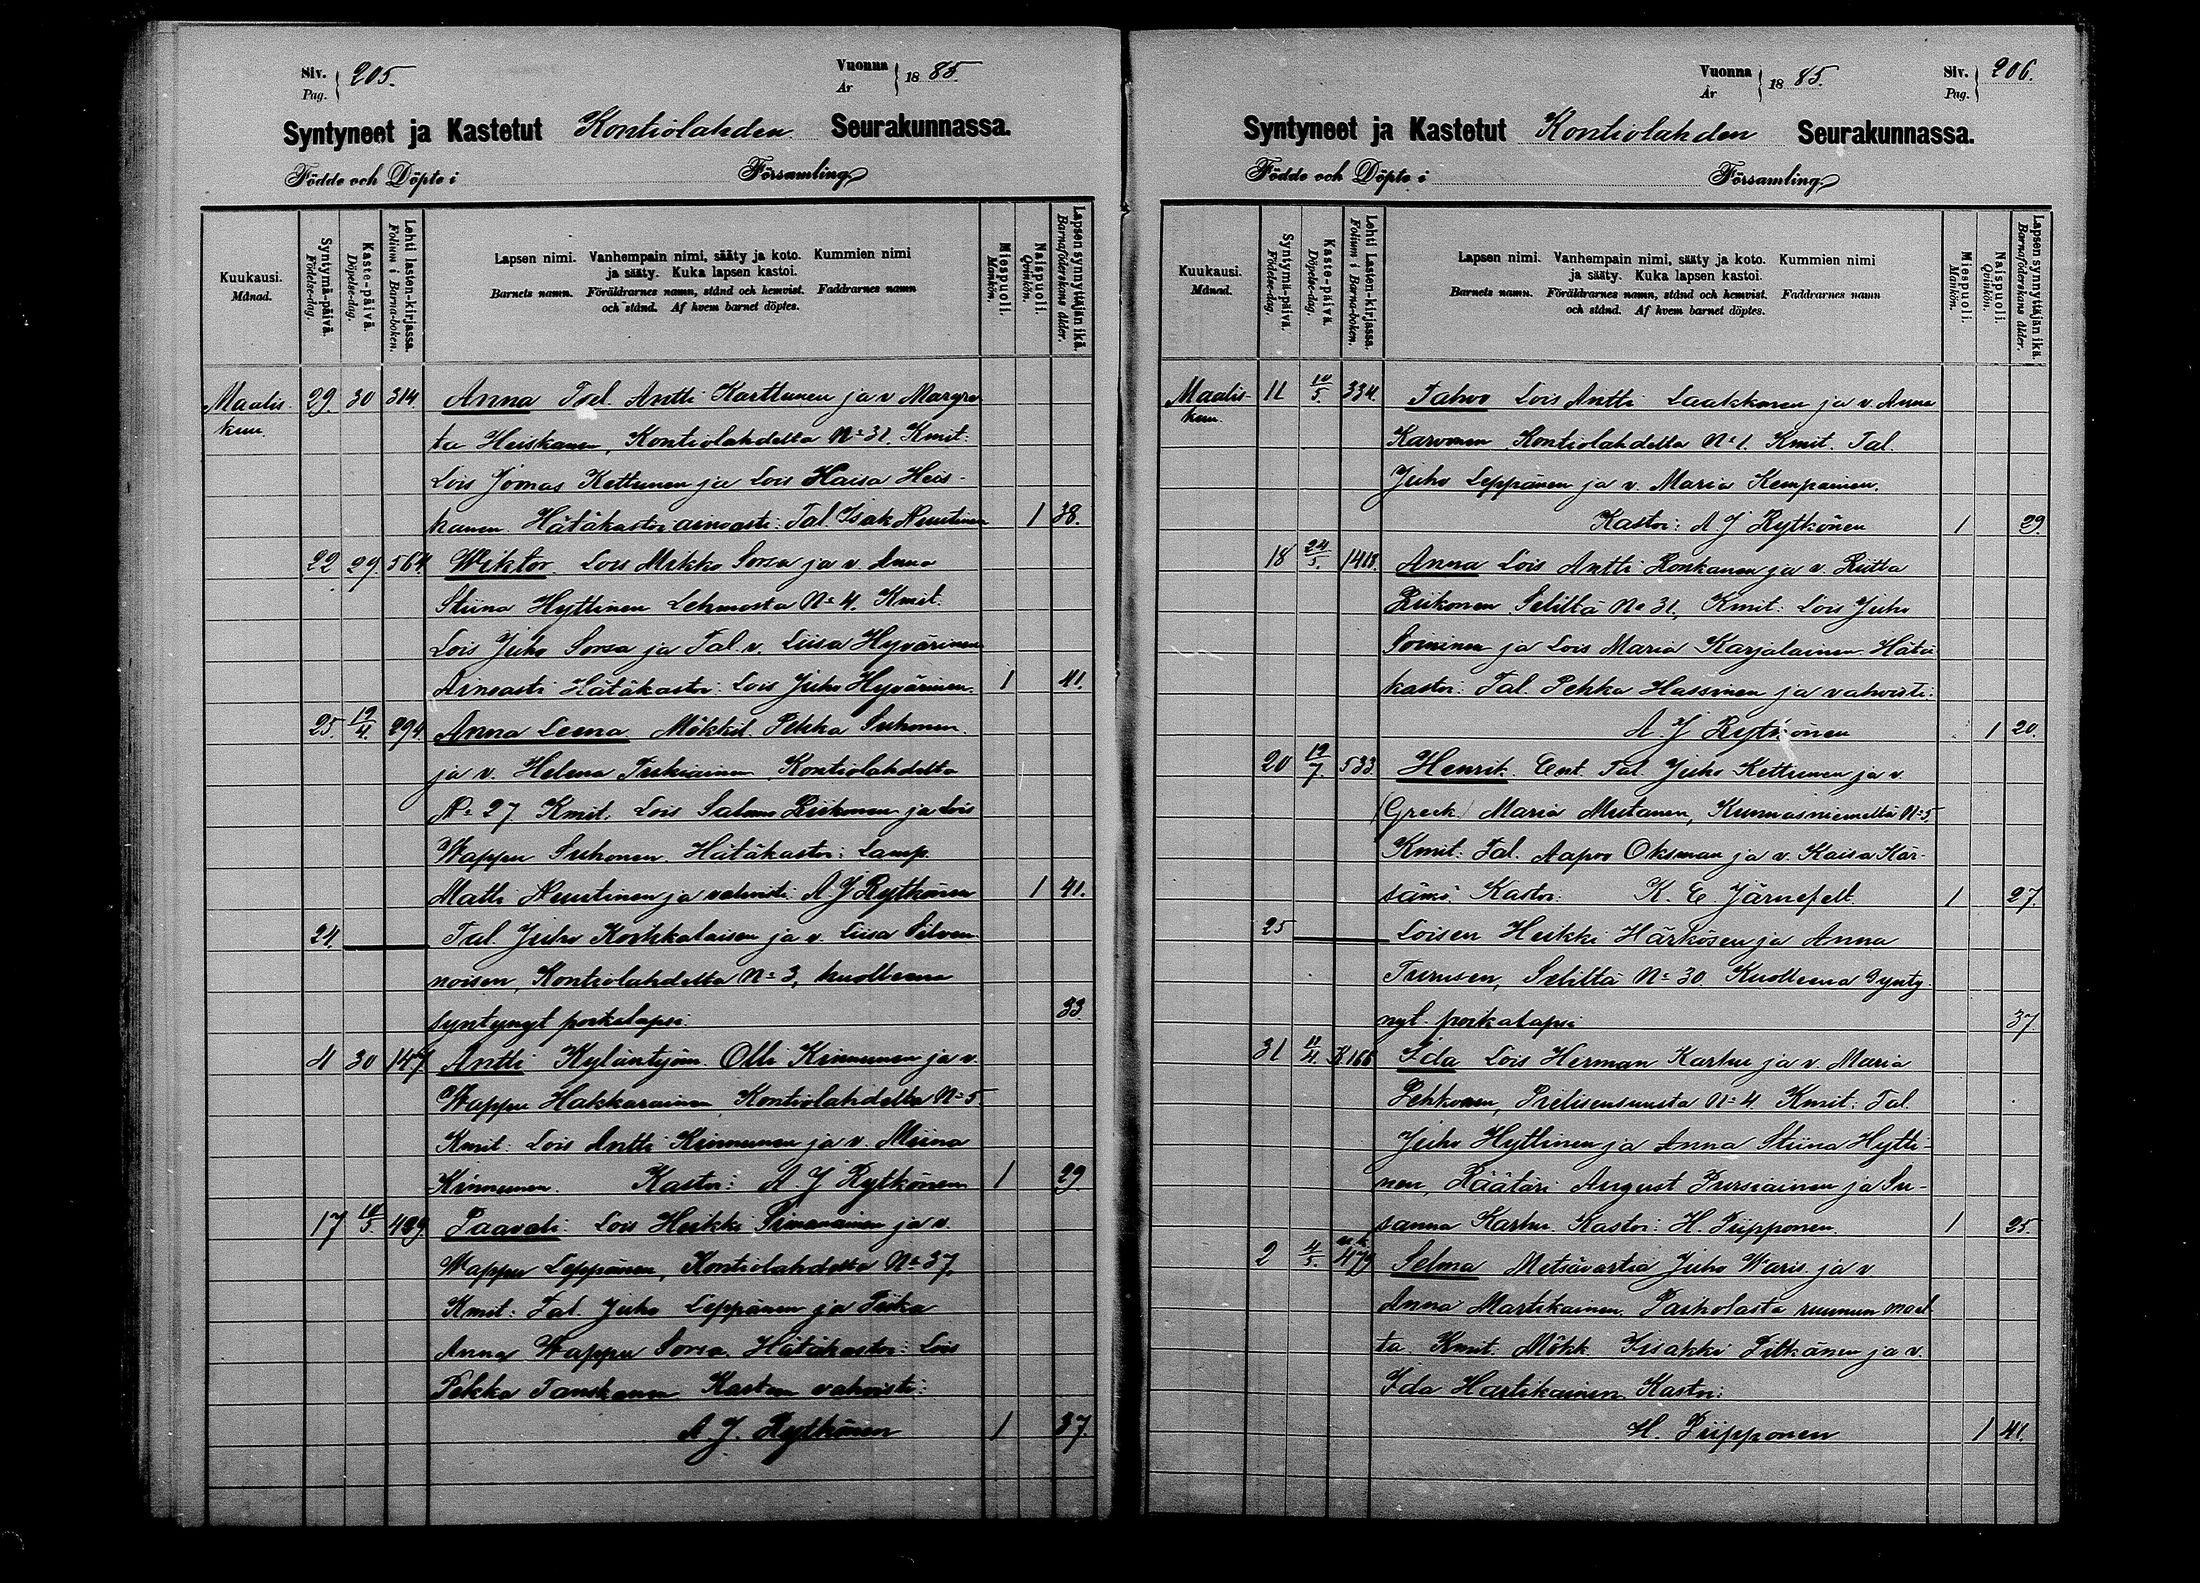 Siv. 205.
Pag.
Vuonna 1885.
År
Syntyneet ja Kastetut Kontiolahden Seurakunnassa.
Födde och Döpte i Församling
Kuukausi. Månad.
Syntymä-päivä. Födelse-dag.
Kaste-päivä. Döpelse-dag.
Lehti lasten-kirjassa. Folium i Barna-boken.
Lapsen nimi. Vanhempain nimi, sääty ja koto. Kummien nimi
ja sääty. Kuka lapsen kastoi.
Barnets namn. Föräldrarnes namn, stånd och hemvist. Faddrarnes namn
och stånd. Af hvem barnet döptes.
Miespuoli. Mankön.
Naispuoli. Qvinkön.
Lapsen synnyttäjän ikä. Barnaföderskans ålder.
Maalis- 29. 30 314. Anna Antti Karttunen ja v Margre
kuu. ta Heiskanen, Kontiolahdelta No 31. Kmit:
Lois Joonas Kettunen ja Lois Kaisa Heis-
kanen. Hätäkastoi ainoasti: Tal. Isak Nuutinen 1 38.
22. 29. 564. Wiktor. Lois Mikko Sorsa ja v. Anna
Stiina Hyttinen Lehmosta No 4. Kmit:
Lois Juho Sorsa ja Tal. v. Liisa Hyvärinen
Ainoasti Hätäkastoi: Lois Juho Hyvärinen. 1 41.
25. 19/4. 294 Anna Leena Mökkil. Pekka Suhonen
ja v. Helena Turkiainen Kontiolahdelta
No 27 Kmit. Lois Salomo Riikonen ja Lois
Wappu Suhonen. Hätäkastoi: Lamp.
Matti Nuutinen ja vahvisti: A J Rytkönen 1 41.
24. Tal. Juho Korhkalaisen ja v. Liisa Silven-
noisen, Kontiolahdelta No 3, kuolleena
syntynyt poikalapsi. 33.
4 30 147. Antti Kyläntyöm. Olli Kinnunen ja v.
Wappu Hakkarainen Kontiolahdelta No 5
Kmit: Lois Antti Kinnunen ja v. Miina
Kinnunen. Kastoi: A. J Rytkönen 1 29
17 10/5. 429. Paavali: Lois Heikki Simanainen ja v.
Wappu Leppänen, Kontiolahdelta No 37.
Kmit: Tal. Juho Leppänen ja Piika
Anna Wappu Sorsa. Hätäkastoi: Lois
Pekka Tanskanen Kasteen vahvisti:
A. J. Rytkönen 1 37.
Vuonna 1885.
År
Siv. 206.
Pag.
Syntyneet ja Kastetut Kontiolahden Seurakunnassa.
Födde och Döpte i Församling
Kuukausi. Månad.
Syntymä-päivä. Födelse-dag.
Kaste-päivä. Döpelse-dag.
Lehti Lasten-kirjassa. Folium i Barna-boken.
Lapsen nimi. Vanhempain nimi, sääty ja koto. Kummien nimi
ja sääty. Kuka lapsen kastoi.
Barnets namn. Föräldrarnes namn, stånd och hemvist. Faddrarnes namn
och stånd. Af hvem barnet döptes.
Miespuoli. Mankön.
Naispuoli. Qvinkön.
Lapsen synnyttäjän ikä. Barnaföderskans ålder.
Maalis- 11 10/5. 334. Tahvo Lois Antti Laakkonen ja v. Anna
kuu. Karvonen Kontiolahdelta No 1. Kmit. Tal.
Juho Leppänen ja v. Maria Kempainen.
Kastoi: A J Rytkönen 1 29.
18 24/5. 1418. Anna Lois Antti Ronkanen ja v. Riitta
Riikonen Seliltä No 31, Kmit: Lois Juho
Soininen ja Lois Maria Karjalainen. Hätä
kastoi: Tal. Pekka Hassinen ja vahvisti:
A. J Rytkönen 1 20.
20 19/7. 533. Henrik. Ent. Tal. Juho Kettunen ja v.
(Greck.) Maria Mutanen, Kunnasniemeltä No 5.
Kmit: Tal. Aapo Oksman ja v. Kaisa Kär-
sämö Kastoi: K. E. Järnefelt. 1 27.
25 Loisen Heikki Härkösen ja Anna
Turusen, Seliltä No 30. Kuolleena synty
nyt poikalapsi 37.
31 11/4. K.166 Ida Lois Herman Karhu ja v. Maria
Lehkonen, Pielisensuusta No 4. Kmit: Tal.
Juho Hyttinen ja Anna Stiina Hytti-
nen, Räätäri August Pursiainen ja Su-
sanna Karhu Kastoi: H. Piipponen. 1 25.
2 4/5. 479 Selma Metsävartia Juho Waris ja v
Anna Martikainen. Paiholasta ruunun maal
ta. Kmit: Mökk. Kisakki Pitkänen ja v.
Ida Hartikainen Kastoi:
H. Piipponen 1 41.